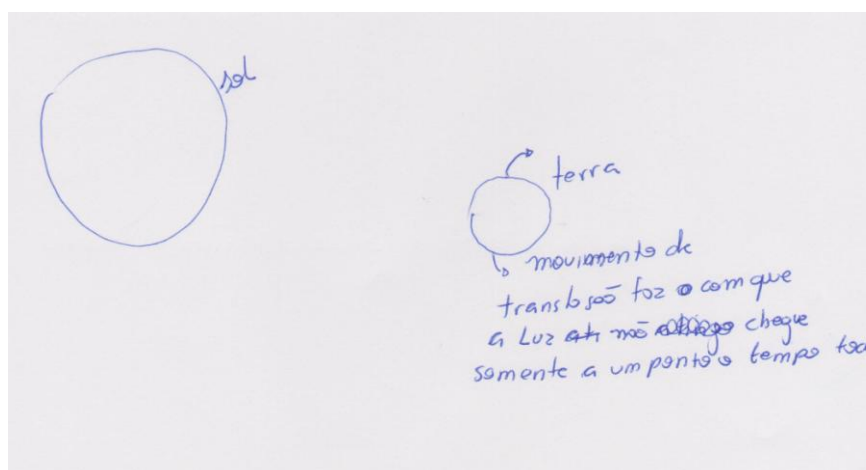 sol
terra
movimento de
translação faz com que
a Luz não chegue
somente a um ponto o tempo tod